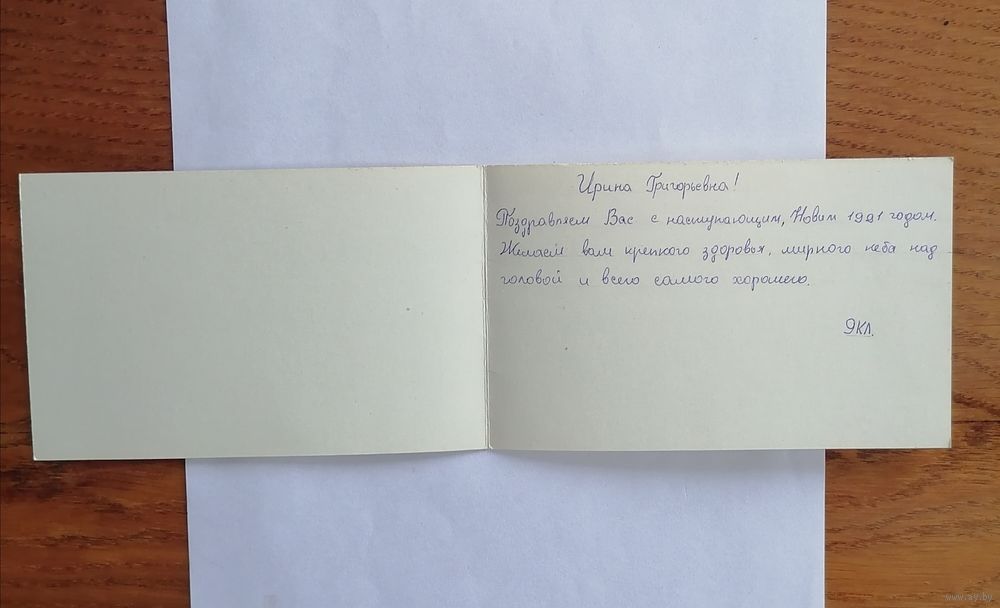 Ирина Григорьевна!
Поздравляем Вас с наступающим, Новым 1991 годом.
Желаем вам крепкого здоровья, мирного неба над
головой и всего самого хорошего.
9кл.
www.ay.by